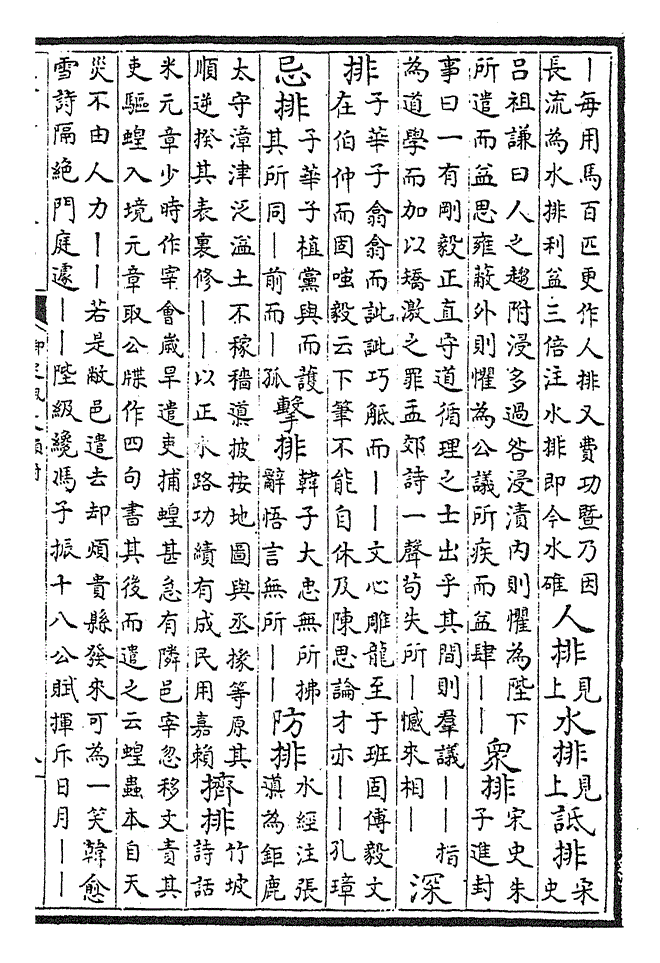 ｜每用馬百匹更作人排又費功暨乃因
長流為水排利益三倍注水排即今水碓
人排見上水排見上詆排宋史
呂祖謙曰人之趨附浸多過咎浸漬内則懼為陛下
所遣而益思雍蔽外則懼為公議所疾而益肆｜｜
衆排宋史朱子進封
事曰一有剛毅正直守道循理之士出乎其間則羣議｜｜指
為道學而加以矯激之罪孟郊詩一聲苟失所｜憾來相｜
深
排
子華子翕翕而訿訿巧觝而｜｜文心雕龍至于班固傅毅文
在伯仲而固嗤毅云下筆不能自休及陳思論才亦｜｜孔璋
忌排子華子植黨與而護其所同｜前而｜孤
擊排韓子大忠無所拂辭悟言無所｜｜
防排水經注張滇為鉅鹿
太守漳津泛濫土不稼穡滇披按地圖與丞掾等原其
順逆揆其表裏修｜｜以正水路功績有成民用嘉賴
擠排竹坡詩話
米元章少時作宰會歲旱遣吏捕蝗甚急有隣邑宰忽移文責其
吏驅蝗入境元章取公牒作四句書其後而遣之云蝗蟲本自天
災不由人力｜｜若是敝邑遣去却煩貴縣發來可為一笑韓愈
雪詩隔絕門庭遽｜｜陛級纔馮子振十八公賦揮斥日月｜｜